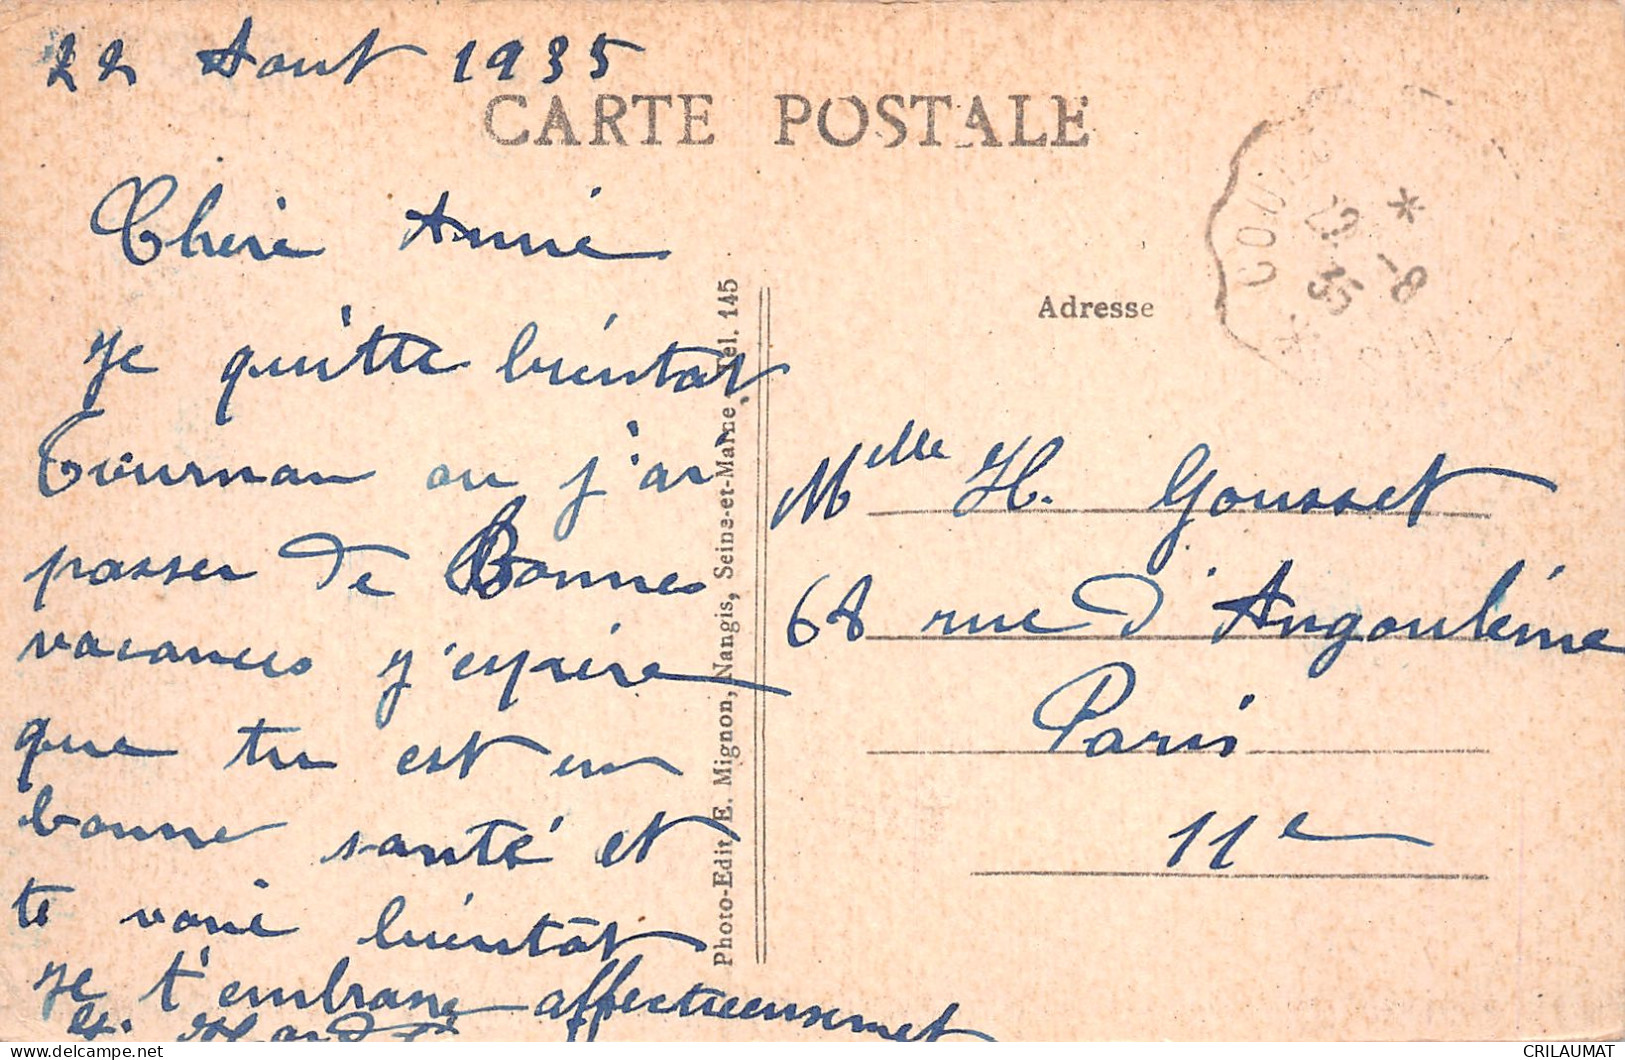 22 Aout 1935
CARTE POSTALE
Chère Amie
Je quitte bientot
Tournan ou j'ai
passer de Bonnes
vacances j'espère
que tu est en
bonne santé et
te voire bientôt
Je t'embrasse affectueusemet
Photo-Edit. E. Mignon, Nangis, Seine-et-Marne, Tel. 145
Adresse
22 -8
35
Melle H. Gousset
68 rue d'Angoulême
Paris
11e
CRILAUMAT